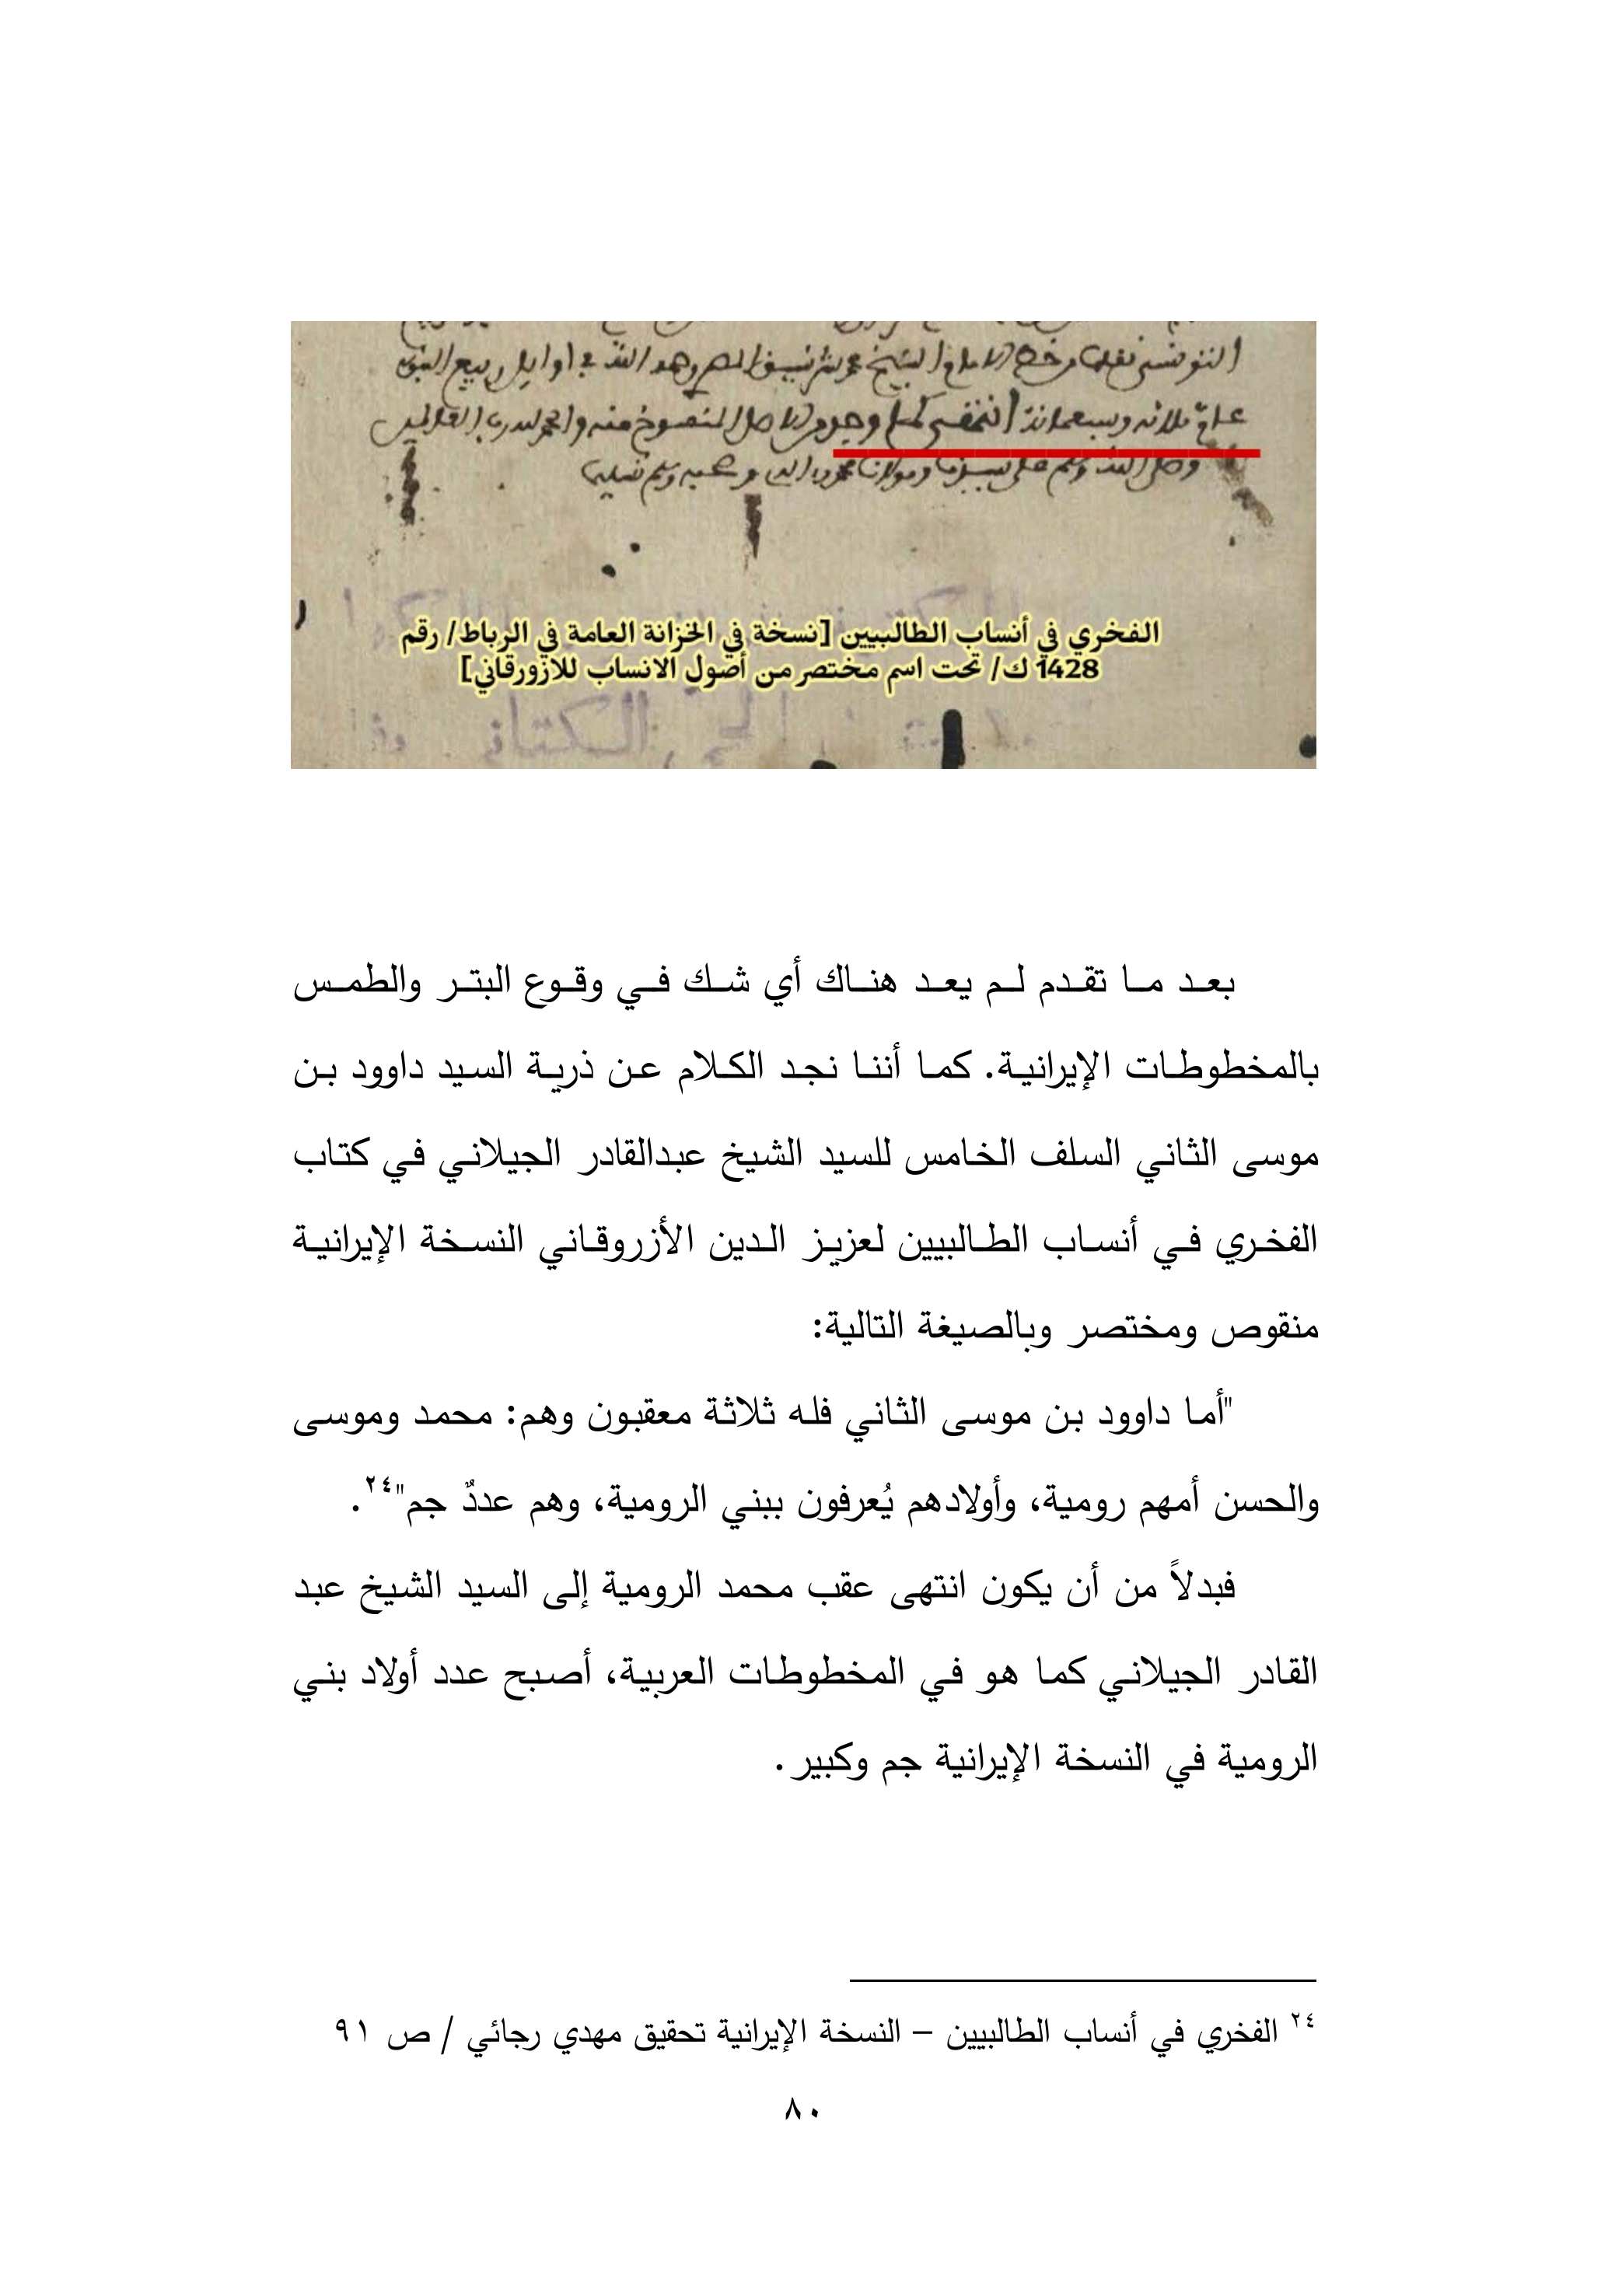 عام ثلاثة وسبعمائة انتهى كما وجد من الاصل المنسوخ منه والحمد لله رب العالمين
وصلى الله وسلم على سيدنا ومولانا محمد وسلم تسليما
الفخري في أنساب الطالبيين [نسخة في الخزانة العامة في الرباط/ رقم
1428 ك/ تحت اسم مختصر من أصول الانساب للازورقاني]
بعد ما تقدم لم يعد هناك أي شك في وقوع البتر والطمس
بالمخطوطات الإيرانية. كما أننا نجد الكلام عن ذرية السيد داوود بن
موسى الثاني السلف الخامس للسيد الشيخ عبدالقادر الجيلاني في كتاب
الفخري في أنساب الطالبيين لعزيز الدين الأزروقاني النسخة الإيرانية
منقوص ومختصر وبالصيغة التالية:
"أما داوود بن موسى الثاني فله ثلاثة معقبون وهم: محمد وموسى
والحسن أمهم رومية، وأولادهم يُعرفون ببني الرومية، وهم عددٌ جم"٢٤.
فبدلاً من أن يكون انتهى عقب محمد الرومية إلى السيد الشيخ عبد
القادر الجيلاني كما هو في المخطوطات العربية، أصبح عدد أولاد بني
الرومية في النسخة الإيرانية جم وكبير.
٢٤ الفخري في أنساب الطالبيين – النسخة الإيرانية تحقيق مهدي رجائي / ص ٩١
٨٠